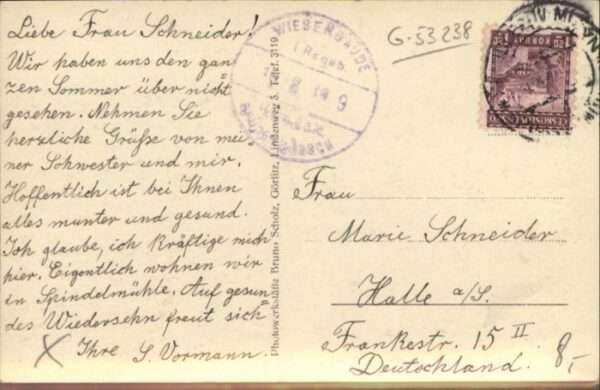 Liebe Frau Schneider!
Wir haben uns den gan
zen Sommer über nicht
gesehen. Nehmen Sie
herzliche Grüße von mei
ner Schwester und mir.
Hoffentlich ist bei Ihnen
alles munter und gesund.
Ich glaube, ich kräftige mich
hier. Eigentlich wohnen wir
in Spindelmühle. Auf gesun
des Wiedersehn freut sich
Ihre S. Vormann.
WIESENBAUDE
Photowerkstätte Bruno Scholz, Görlitz, Lindenweg 3. Telef. 3119
G-53238
ČESKOSLOVENSKO
Frau
Marie Schneider
Halle a/S.
Frankestr. 15 II
Deutschland.
8,-